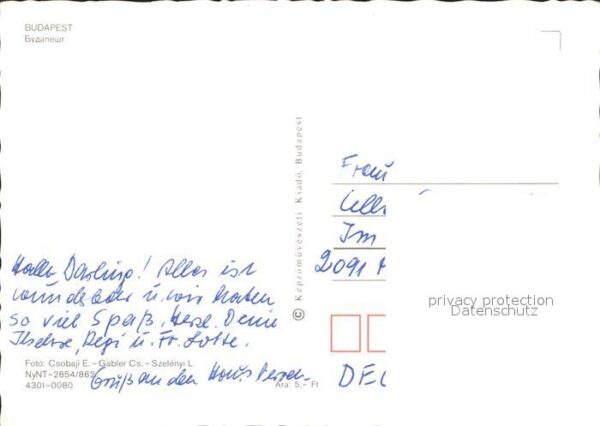 BUDAPEST
Будапешт
© Képzőművészeti Kiadó, Budapest
Hallo Darling! Alles ist
wunderbar u. wir haben
so viel Spaß. Herzl. Deine
Ilse, Regi u. Fr. Lotte.
Gruß an den
Foto: Csobaji E. – Gabler Cs. – Szelényi L.
NyNT–2854/862
4301-0080
Ára: 5,– Ft
Frau
Im
2091
DEU
privacy protection
Datenschutz